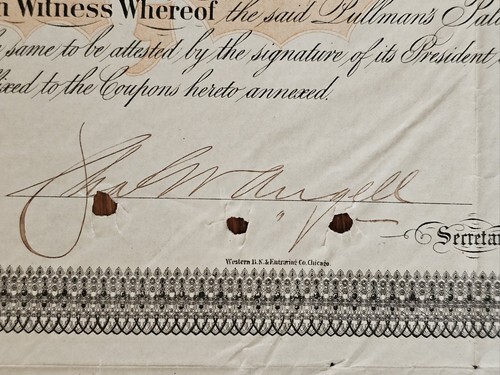 n Witness Whereof the said Pullman's Pal
same to be attested by the signature of its President
ixed to the Coupons hereto annexed.
Chas W Angell
Secreta
Western B.N.& Engraving Co. Chicago.